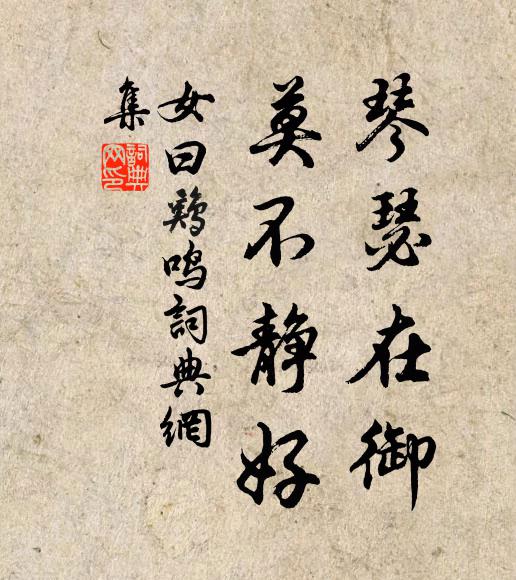 琴瑟在御
莫不静好
女曰鸡鸣詞典網
集
詞典
网印